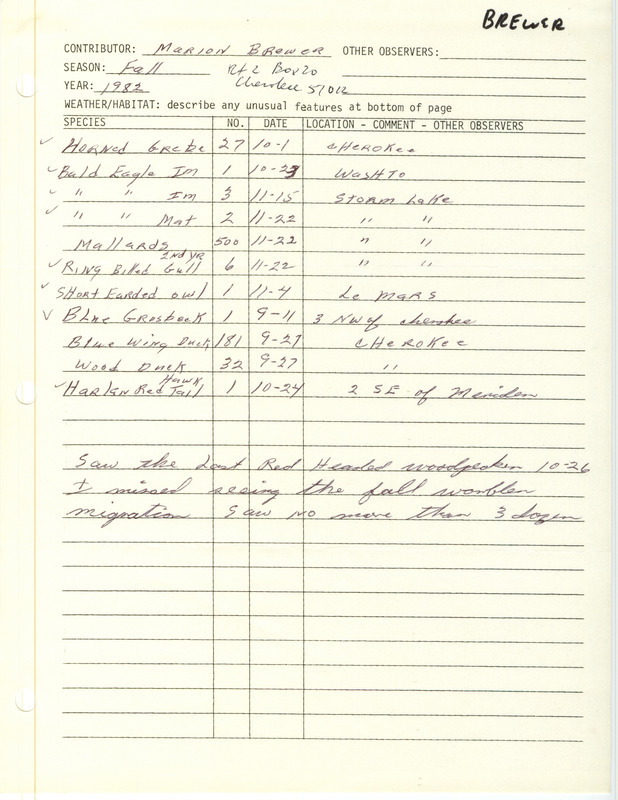 BREWER
CONTRIBUTOR: Marion Brewer OTHER OBSERVERS:
SEASON: Fall Rt 2 Box 20
YEAR: 1982 Cherokee 51012
WEATHER/HABITAT: describe any unusual features at bottom of page
SPECIES NO. DATE LOCATION - COMMENT - OTHER OBSERVERS
✓ Horned Grebe 27 10-1 Cherokee
✓ Bald Eagle Im 1 10-23 WashTo
✓ " " Im 3 11-15 Storm Lake
✓ " " Mat 2 11-22 " "
Mallards 500 11-22 " "
✓ Ring Billed Gull 2nd yr 6 11-22 " "
✓ Short Earded owl 1 11-4 Le Mars
✓ Blue Grosbeck 1 9-11 3 NW of Cherokee
Blue Wing Duck 181 9-27 Cherokee
Wood Duck 32 9-27 "
✓ Harlan Red Tail Hawk 1 10-24 2 SE of Meriden
Saw the Last Red Headed woodpecker 10-26
I missed seeing the fall warbler
migration Saw no more than 3 dozen